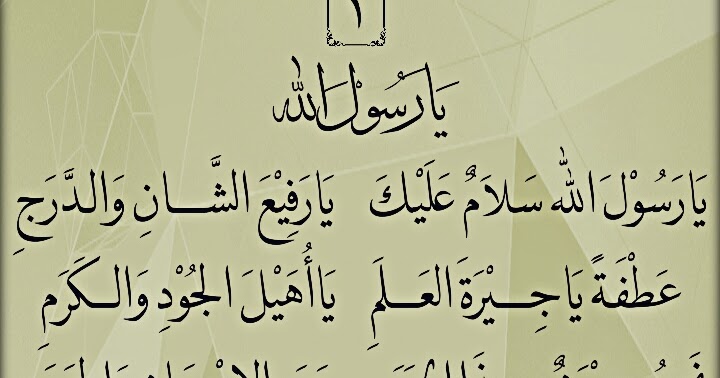 ١
يَا رَسُوْلَ اللّٰه
يَارَسُوْلَ اللّٰه سَلاَمٌ عَلَيْكَ يَارَفِيْعَ الشَّـــانِ وَالـدَّرَجِ
عَطْفَةً يَا جِــيْرَةَ العَـــلَمِ يَا أُهَيْلَ الـجُوْدِ وَالـــكَرَمِ